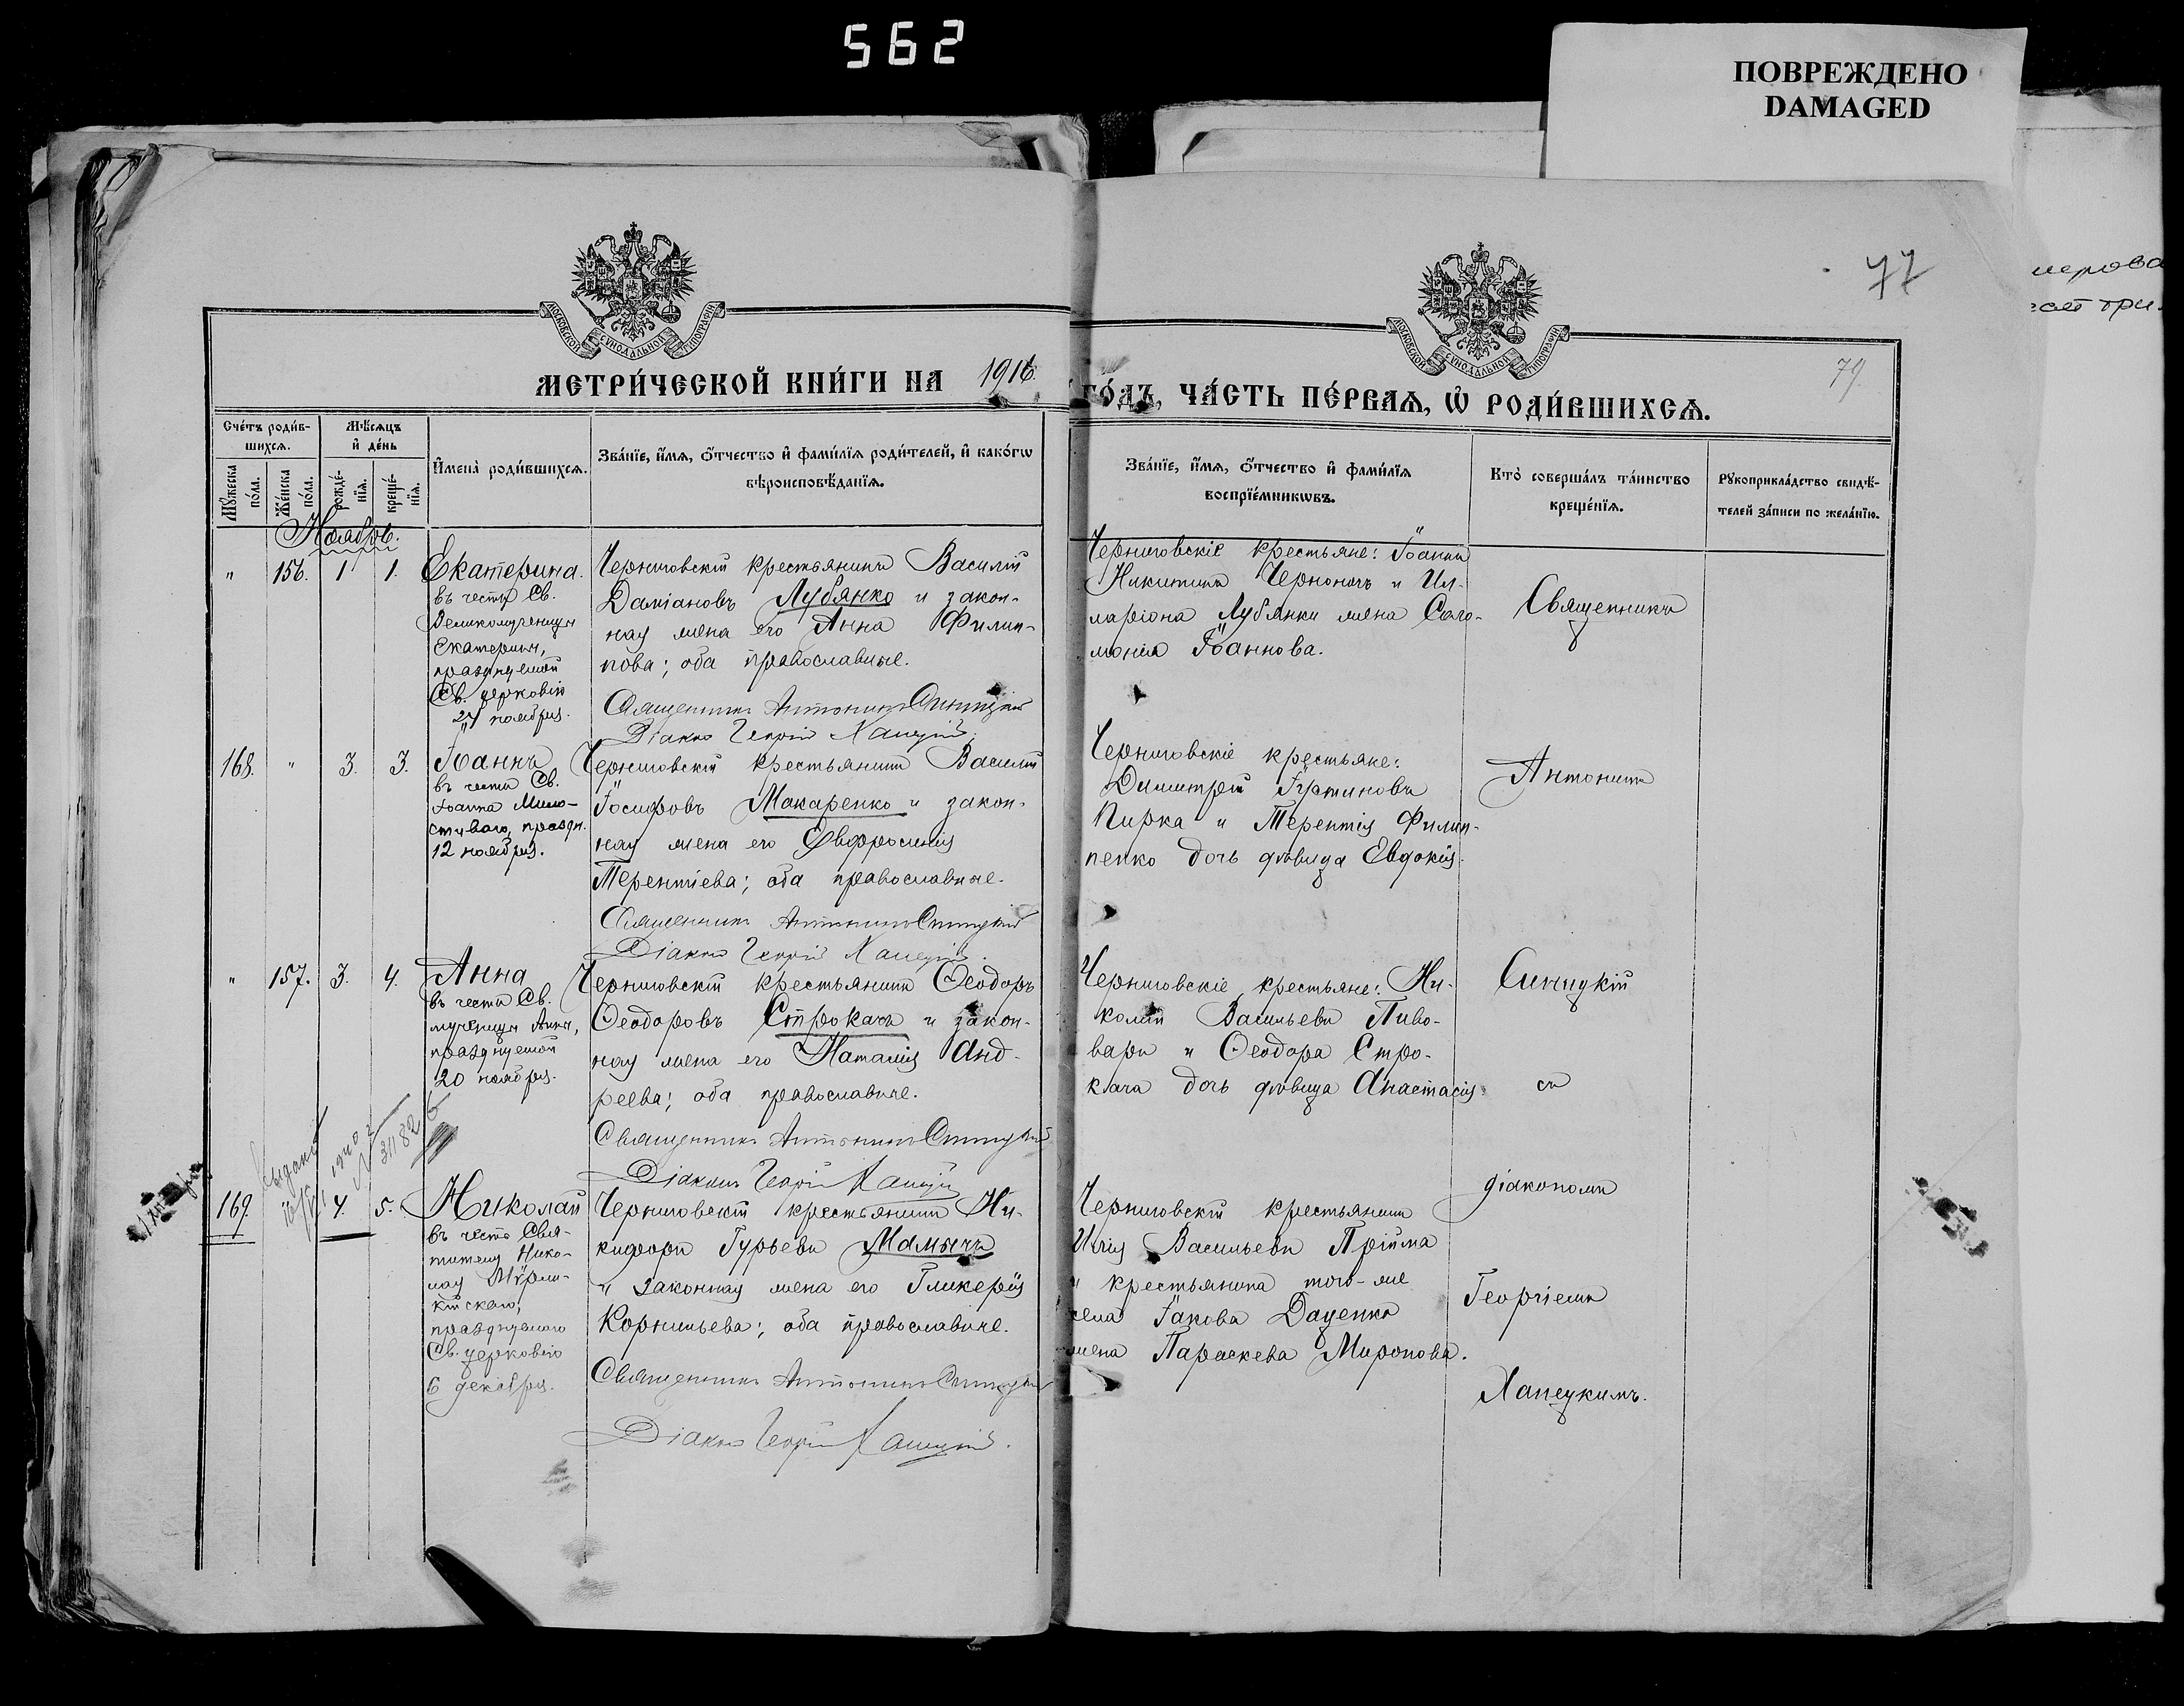 562
ПОВРЕЖДЕНО
DAMAGED
77
79
МОСКОВСКОЙ СѴНОДАЛЬНОЙ ТИПОГРАФІИ
МОСКОВСКОЙ СѴНОДАЛЬНОЙ ТИПОГРАФІИ
МЕТРИ́ЧЕСКОЙ КНИ́ГИ НА 1916.
ГО́ДЪ, ЧА́СТЬ ПЕ́РВАѦ, Ѡ҆ РОДИ́ВШИХСѦ.
Сче́тъ роди́в-
шихсѧ.
Мꙋ́жеска
по́ла.
Же́нска
по́ла.
Мѣ́сѧцъ
и҆ де́нь
рожде́-
нїѧ.
креще́-
нїѧ.
И҆мена̀ роди́вшихсѧ.
Зва́нїе, и҆́мѧ, ѻ҆́тчество и҆ фами́лїѧ роди́телей, и҆ како́гѡ
вѣроисповѣ́данїѧ.
Зва́нїе, и҆́мѧ, ѻ҆́тчество и҆ фами́лїѧ
воспрїе́мникѡвъ.
Кто̀ соверша́лъ та́инство
креще́нїѧ.
Рꙋкоприкла́дство свидѣ́-
телей за́писи по жела́нїю.
Ноябрь.
" 156. 1 1.
Екатерина.
въ честь Св.
Великомученицы
Екатерины,
празднуемой
Св. церковію
24 ноября.
Черниговскій крестьянинъ Василій
Даміановъ Лубянко и закон-
ная жена его Анна Филип-
пова; оба православные.
Священникъ Антонинъ Синицкій
Діаконъ Георгій Хапецкій.
Черниговскіе крестьяне: Іоаннъ
Никитинъ Чернончъ и Ил-
ларіона Лубянки жена Соло-
монія Іоаннова.
Священникъ
168. " 3. 3.
Іоаннъ
въ честь Св.
Іоанна Мило-
стиваго, праздн.
12 ноября.
Черниговскій крестьянинъ Василій
Іосифовъ Макаренко и закон-
ная жена его Евфросинія
Терентіева; оба православные.
Священникъ Антонинъ Синицкій
Діаконъ Георгій Хапецкій.
Черниговскіе крестьяне:
Димитрій Іустиновъ
Пирка и Терентія Филип-
пенко дочь дѣвица Евдокія.
Антонинъ
" 157. 3. 4.
Анна
въ честь Св.
мученицы Анны,
празднуемой
20 ноября.
Черниговскій крестьянинъ Ѳеодоръ
Ѳеодоровъ Строкачъ и закон-
ная жена его Наталія Анд-
реева; оба православные.
Священникъ Антонинъ Синицкій
Діаконъ Георгій Хапецкій
Черниговскіе крестьяне: Ни-
колай Васильевъ Пиво-
варъ и Ѳеодора Стро-
кача дочь дѣвица Анастасія.
Синицкій
съ
169. 4. 5.
Николай
въ честь Свя-
тителя Нико-
лая Мѵрли-
кійскаго,
празднуемаго
Св. церковію
6 декабря.
Черниговскій крестьянинъ Ни-
кифоръ Гурьевъ Мамычъ
и законная жена его Гликерія
Корнильева; оба православные.
Священникъ Антонинъ Синицкій
Діаконъ Георгій Хапецкій.
Черниговскій крестьянинъ
Илія Васильевъ Прійма
и крестьянина того-же
села Іакова Даценко
жена Параскева Миронова.
діакономъ
Георгіемъ
Хапецкимъ.